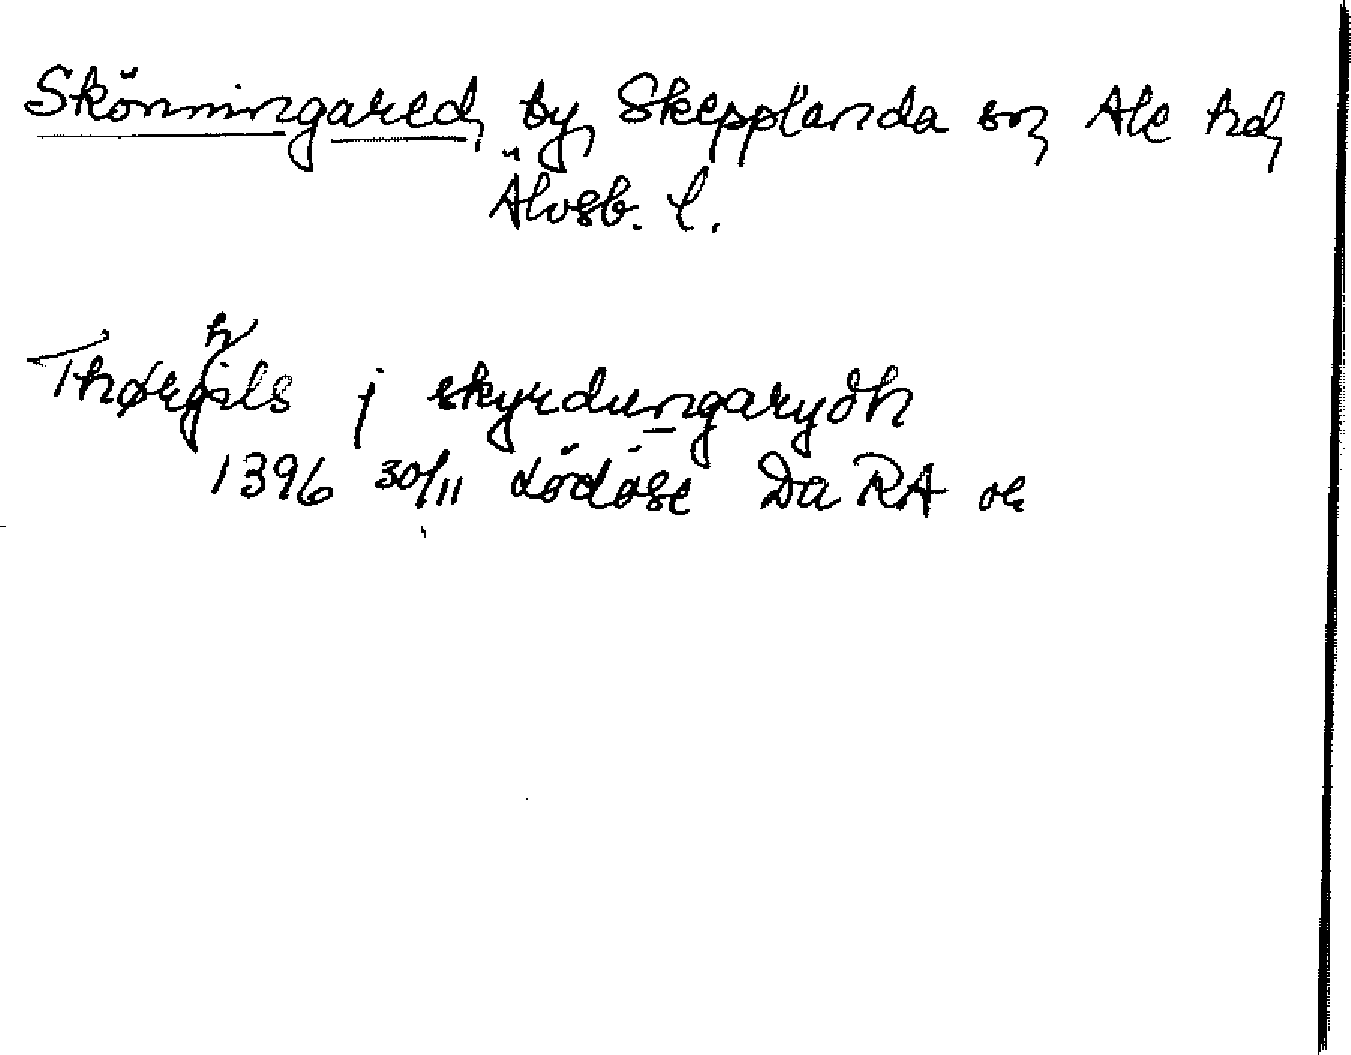 Skönningared, by, Skepplanda sn, Ale hd,
Älvsb. l.
Thørghils j skyrdungarydh
1396 30/11 Lödöse Da RA or